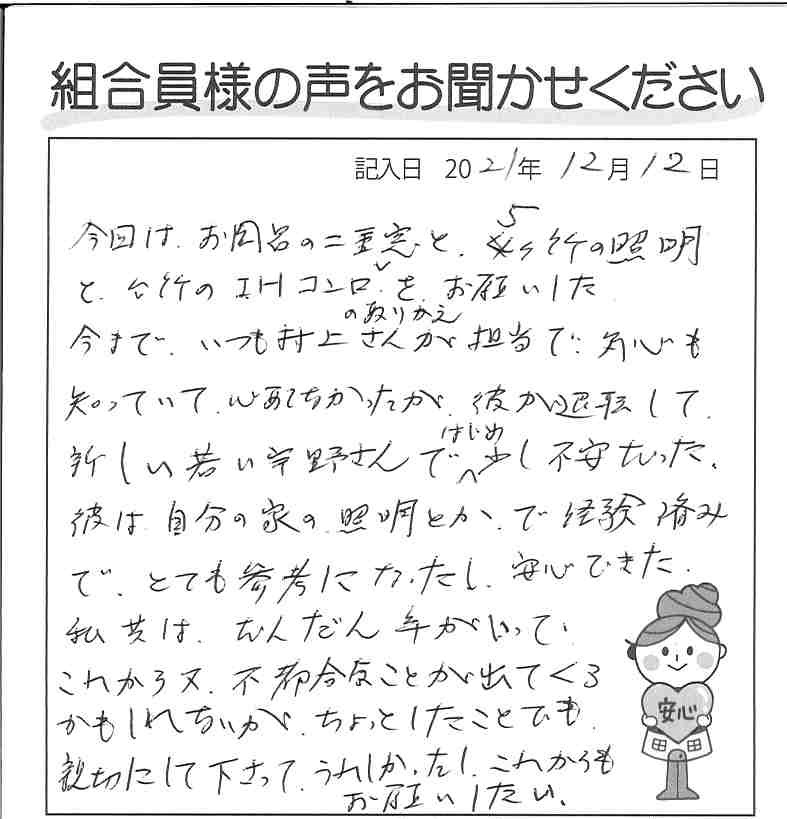 組合員様の声をお聞かせください
記入日 2021年 12月 12日
今回は、お風呂の二重窓と、5ヶ所の照明
と、台所のIHコンロのとりかえを、お願いした
今まで、いつも村上さんが担当で、気心も
知っていて、心安かったが、彼が退職して、
新しい若い宇野さんで はじめ少し不安だった。
彼は、自分の家の、照明とか、で経験済み
で、とても参考になったし、安心できた。
私共は、だんだん年がいって、
これから又、不都合なことが出てくる
かもしれないが、ちょっとしたことでも、
親切にして下さって、うれしかったし、これからも
お願いしたい。
安心